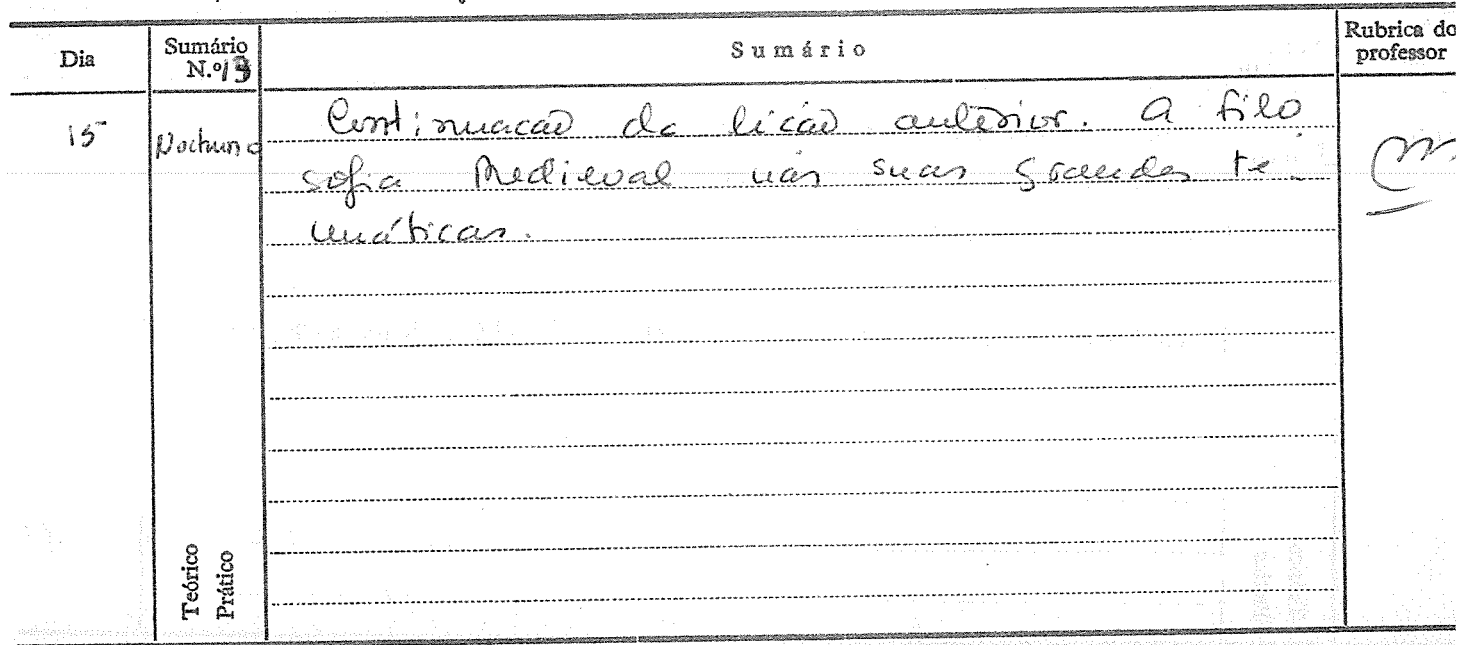 Dia Sumário N.º 13 Sumário Rubrica do professor
15 Nocturno Continuação da lição anterior. A filo
sofia Medieval nas suas grandes te-
máticas.
Teórico
Prático